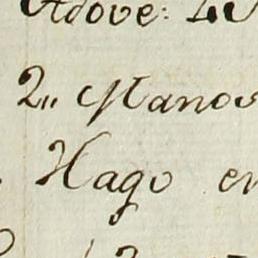 Adove:
2,, Manos
Hago en